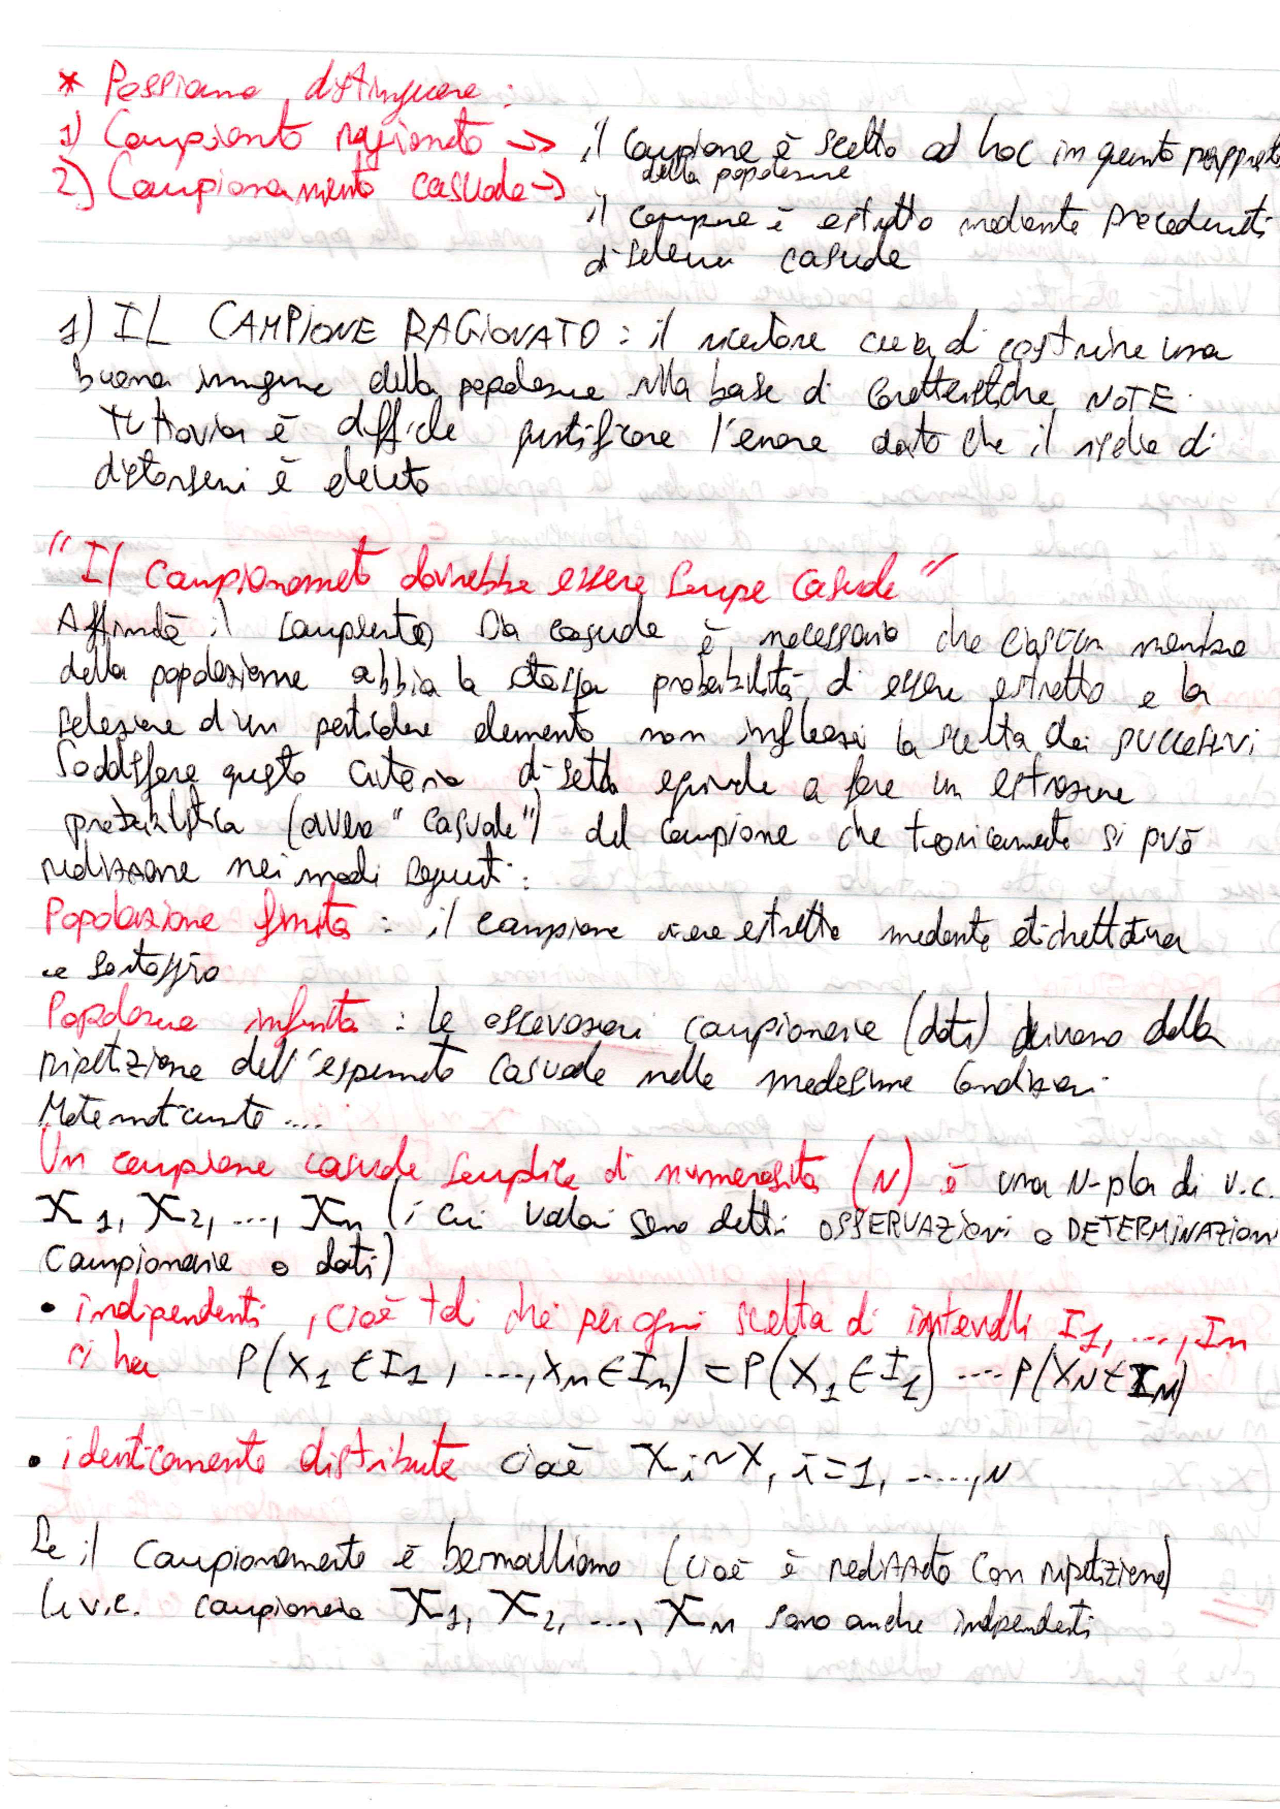 * Possiamo distinguere:
1) Campionamento ragionato → il campione è scelto ad hoc in quanto
della popolazione
2) Campionamento casuale → il campione è estratto mediante procedimenti
di selezione casuale
1) IL CAMPIONE RAGIONATO: il ricercatore cerca di costruire una
buona immagine della popolazione sulla base di caratteristiche NOTE.
Tuttavia è difficile giustificare l'errore dato che il rischio di
distorsioni è elevato
"Il campionamento dovrebbe essere sempre casuale"
Affinché il campionamento sia casuale è necessario che ciascun membro
della popolazione abbia la stessa probabilità di essere estratto e la
selezione d'un particolare elemento non influenzi la scelta dei successivi
Soddisfare questo criterio di scelta equivale a fare un estrazione
probabilistica (ovvero "casuale") del campione che teoricamente si può
realizzare nei modi seguenti:
Popolazione finita: il campione viene estratto mediante etichettatura
e sorteggio
Popolazione infinita: le osservazioni campionarie (dati) derivano dalla
ripetizione dell'esperimento casuale nelle medesime condizioni.
Matematicamente ....
Un campione casuale semplice di numerosità (N) è una N-pla di v.c.
X1, X2, ..., Xn (i cui valori sono detti OSSERVAZIONI o DETERMINAZIONI
Campionarie o dati)
• indipendenti, cioè tali che per ogni scelta di intervalli I1, ..., In
si ha P(X1 ∈ I1, ..., Xn ∈ In) = P(X1 ∈ I1) .... P(XN ∈ IN)
• identicamente distribuite cioè Xi ~ X, i=1, ....., N
Se il campionamento è bernoulliano (cioè è realizzato con ripetizione)
le v.c. campionarie X1, X2, ..., Xn sono anche indipendenti